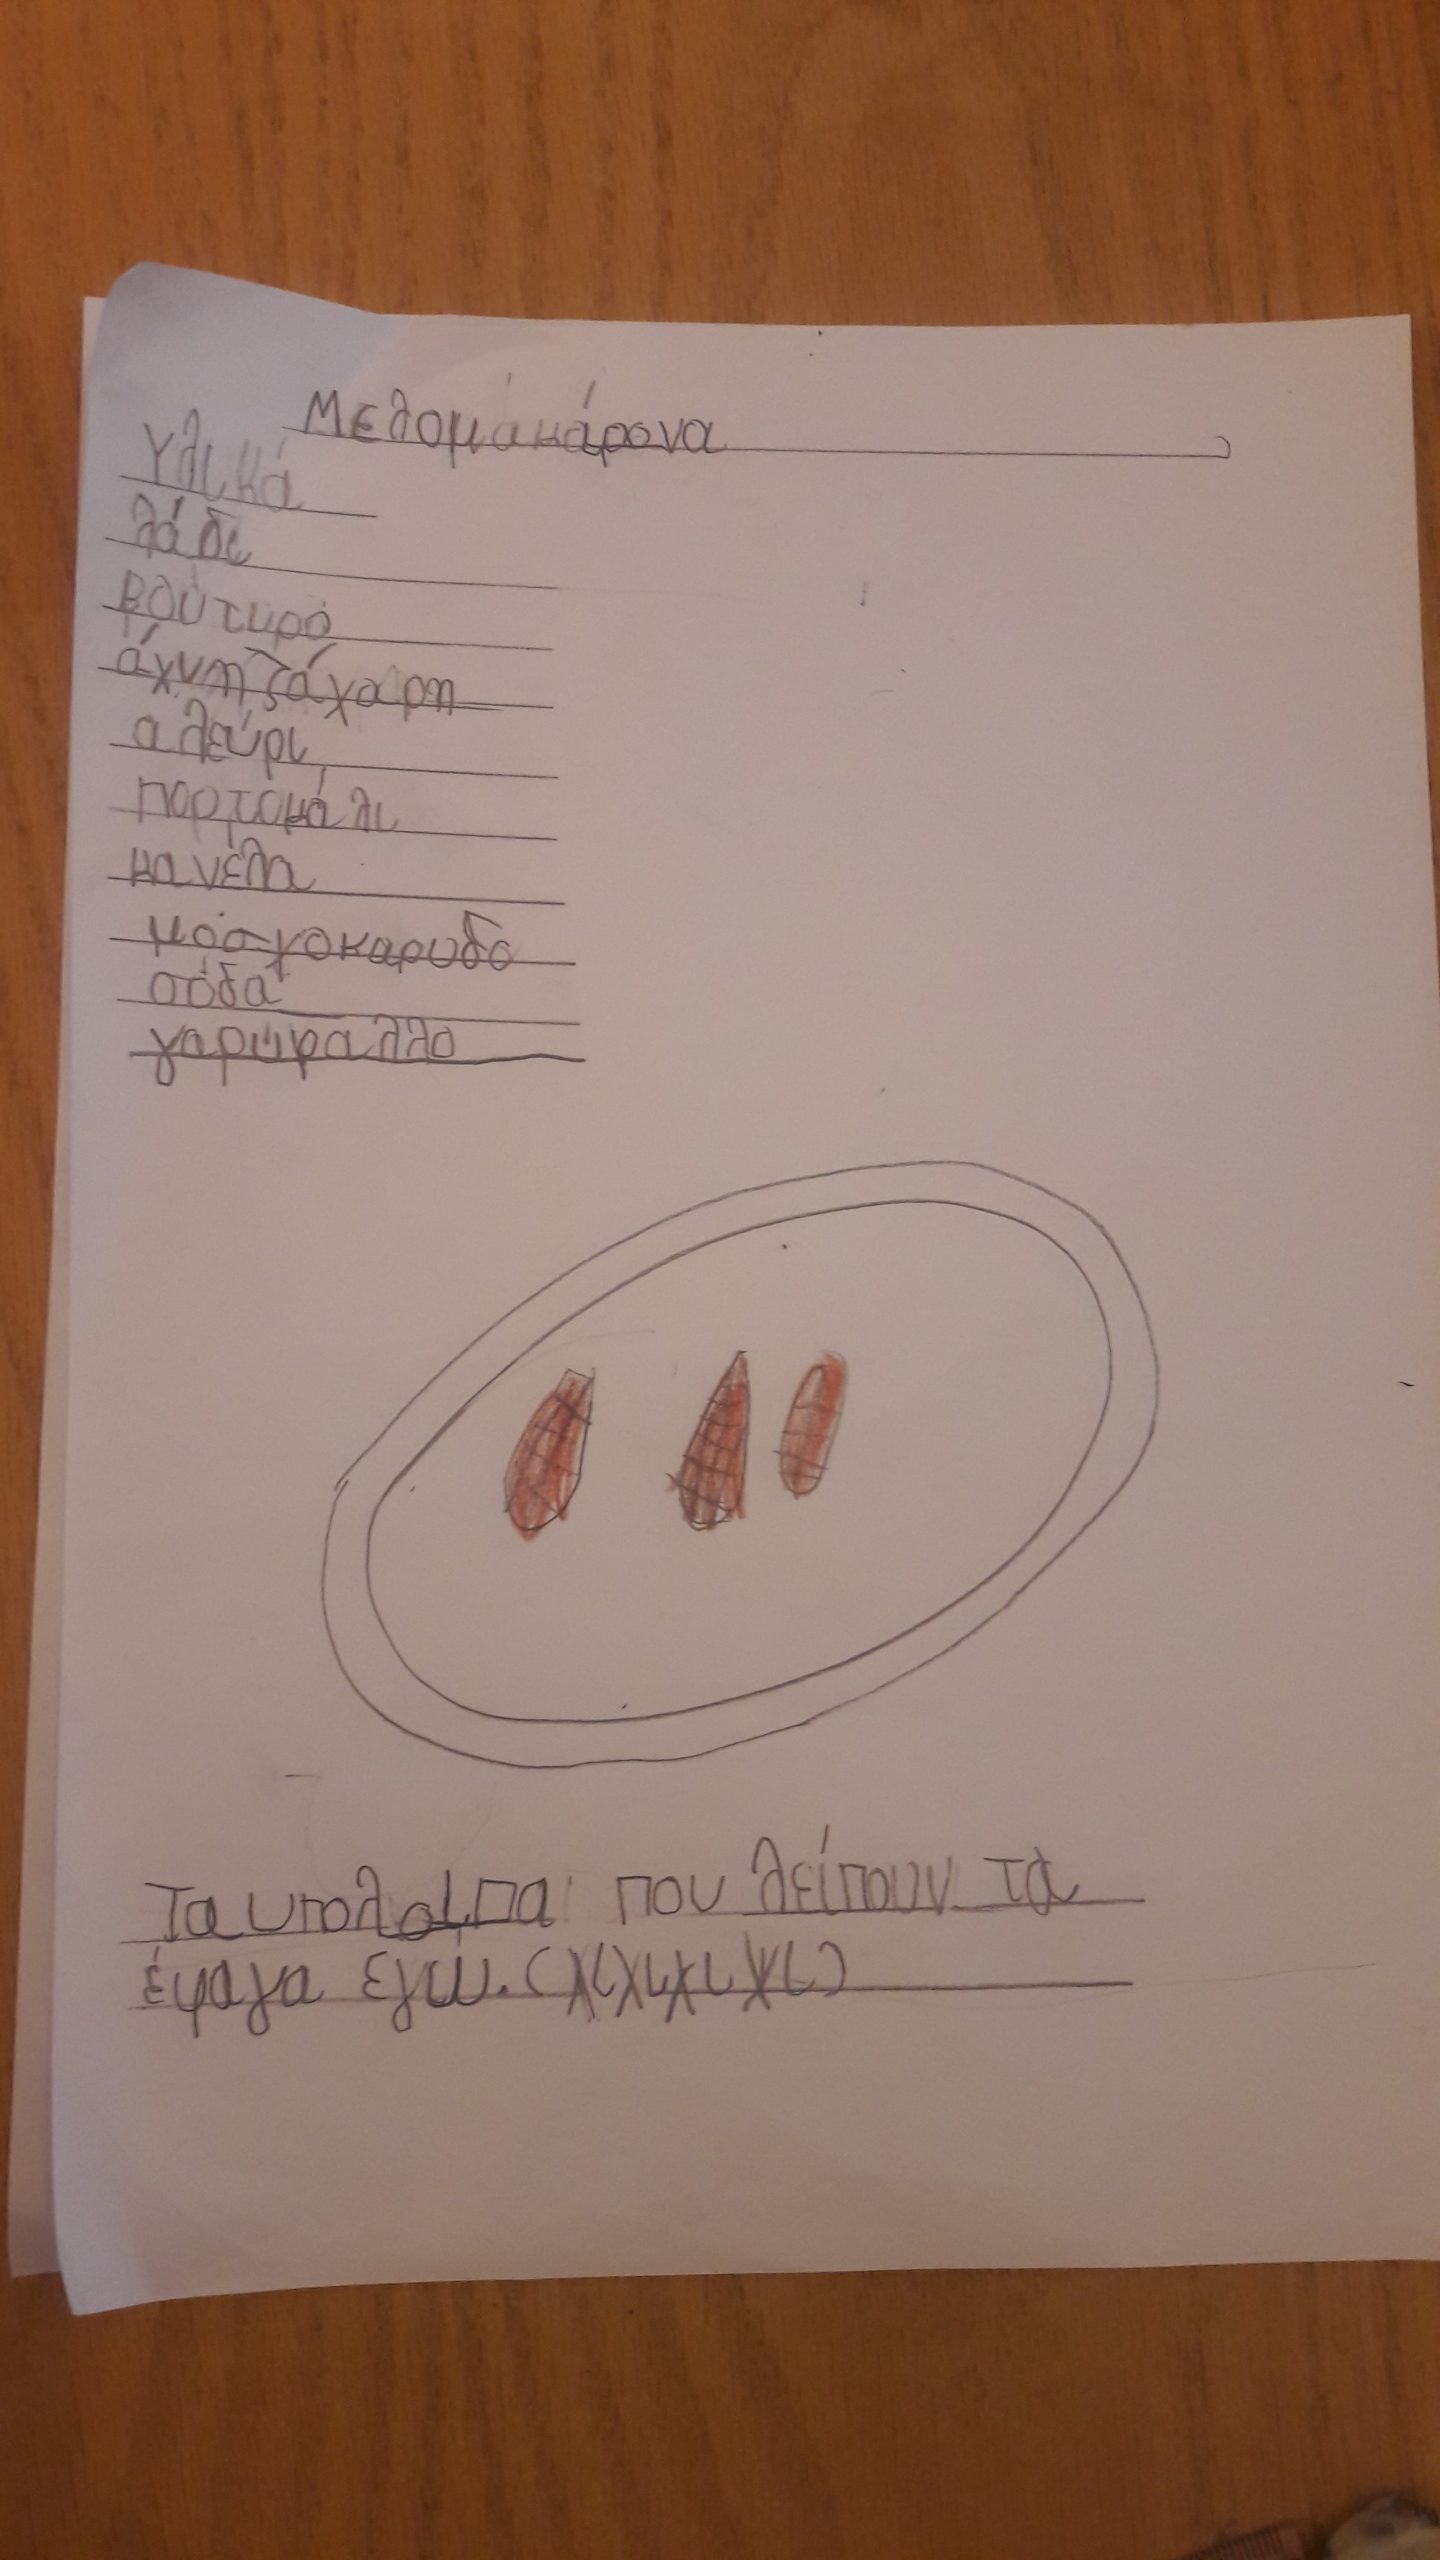 Μελομακάρονα
Υλικά
λάδι
βούτυρο
άχνη ζάχαρη
αλεύρι
πορτομάλι
κανέλα
μόσχοκαρυδο
σόδα
γαρύφαλλο
Τα υπολοιπα που λείπουν τα
έφαγα εγώ. (χιχιχιχι)